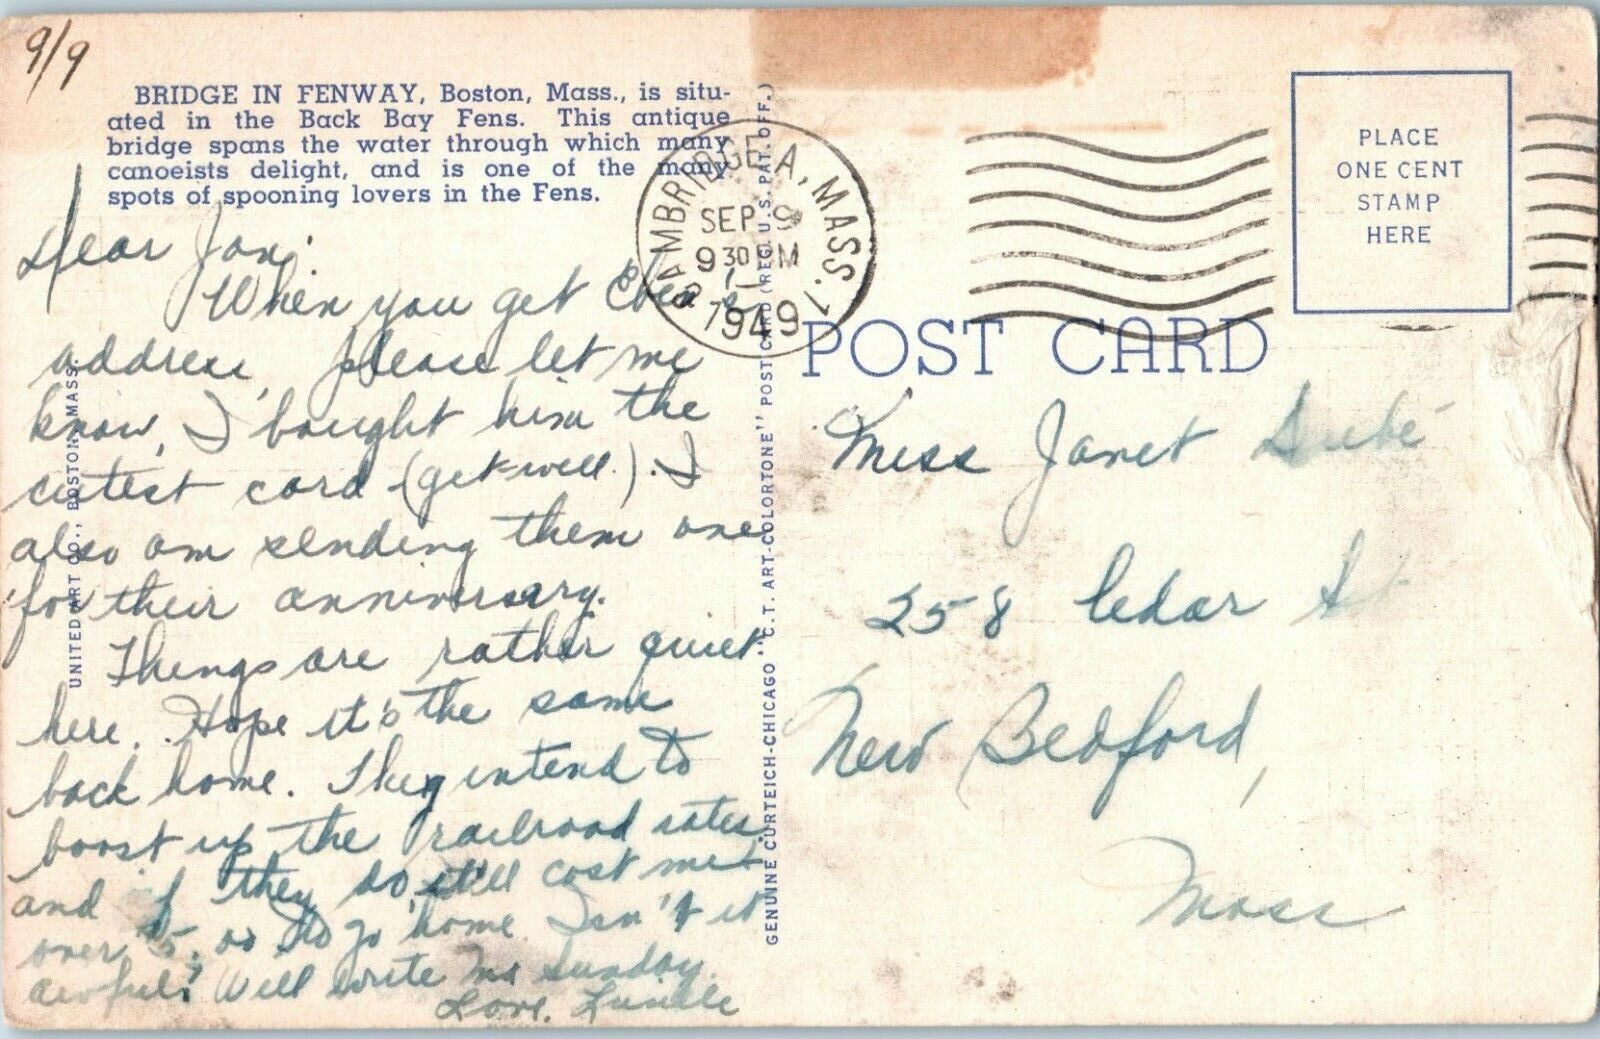 9/9
BRIDGE IN FENWAY, Boston, Mass., is situ-
ated in the Back Bay Fens. This antique
bridge spans the water through which many
canoeists delight, and is one of the many
spots of spooning lovers in the Fens.
Dear Jan;
When you get
address, please let me
know, I bought him the
cutest card (get-well.). I
also am sending them one
for their anniversary.
Things are rather quiet
here. Hope it's the same
back home. They intend to
boost up the railroad rates
and if they do, it'll cost me
over $5.00 to go home Isn't it
awful! Will write Sunday.
Love. Lucille
UNITED ART CO., BOSTON, MASS.
GENUINE CURTEICH-CHICAGO "C.T. ART-COLORTONE" POST CARD (REG. U.S. PAT. OFF.)
CAMBRIDGE A, MASS. 1
SEP 9
9 30 PM
1949
PLACE
ONE CENT
STAMP
HERE
POST CARD
Miss Janet Dubé
258 Cedar St
New Bedford,
Mass